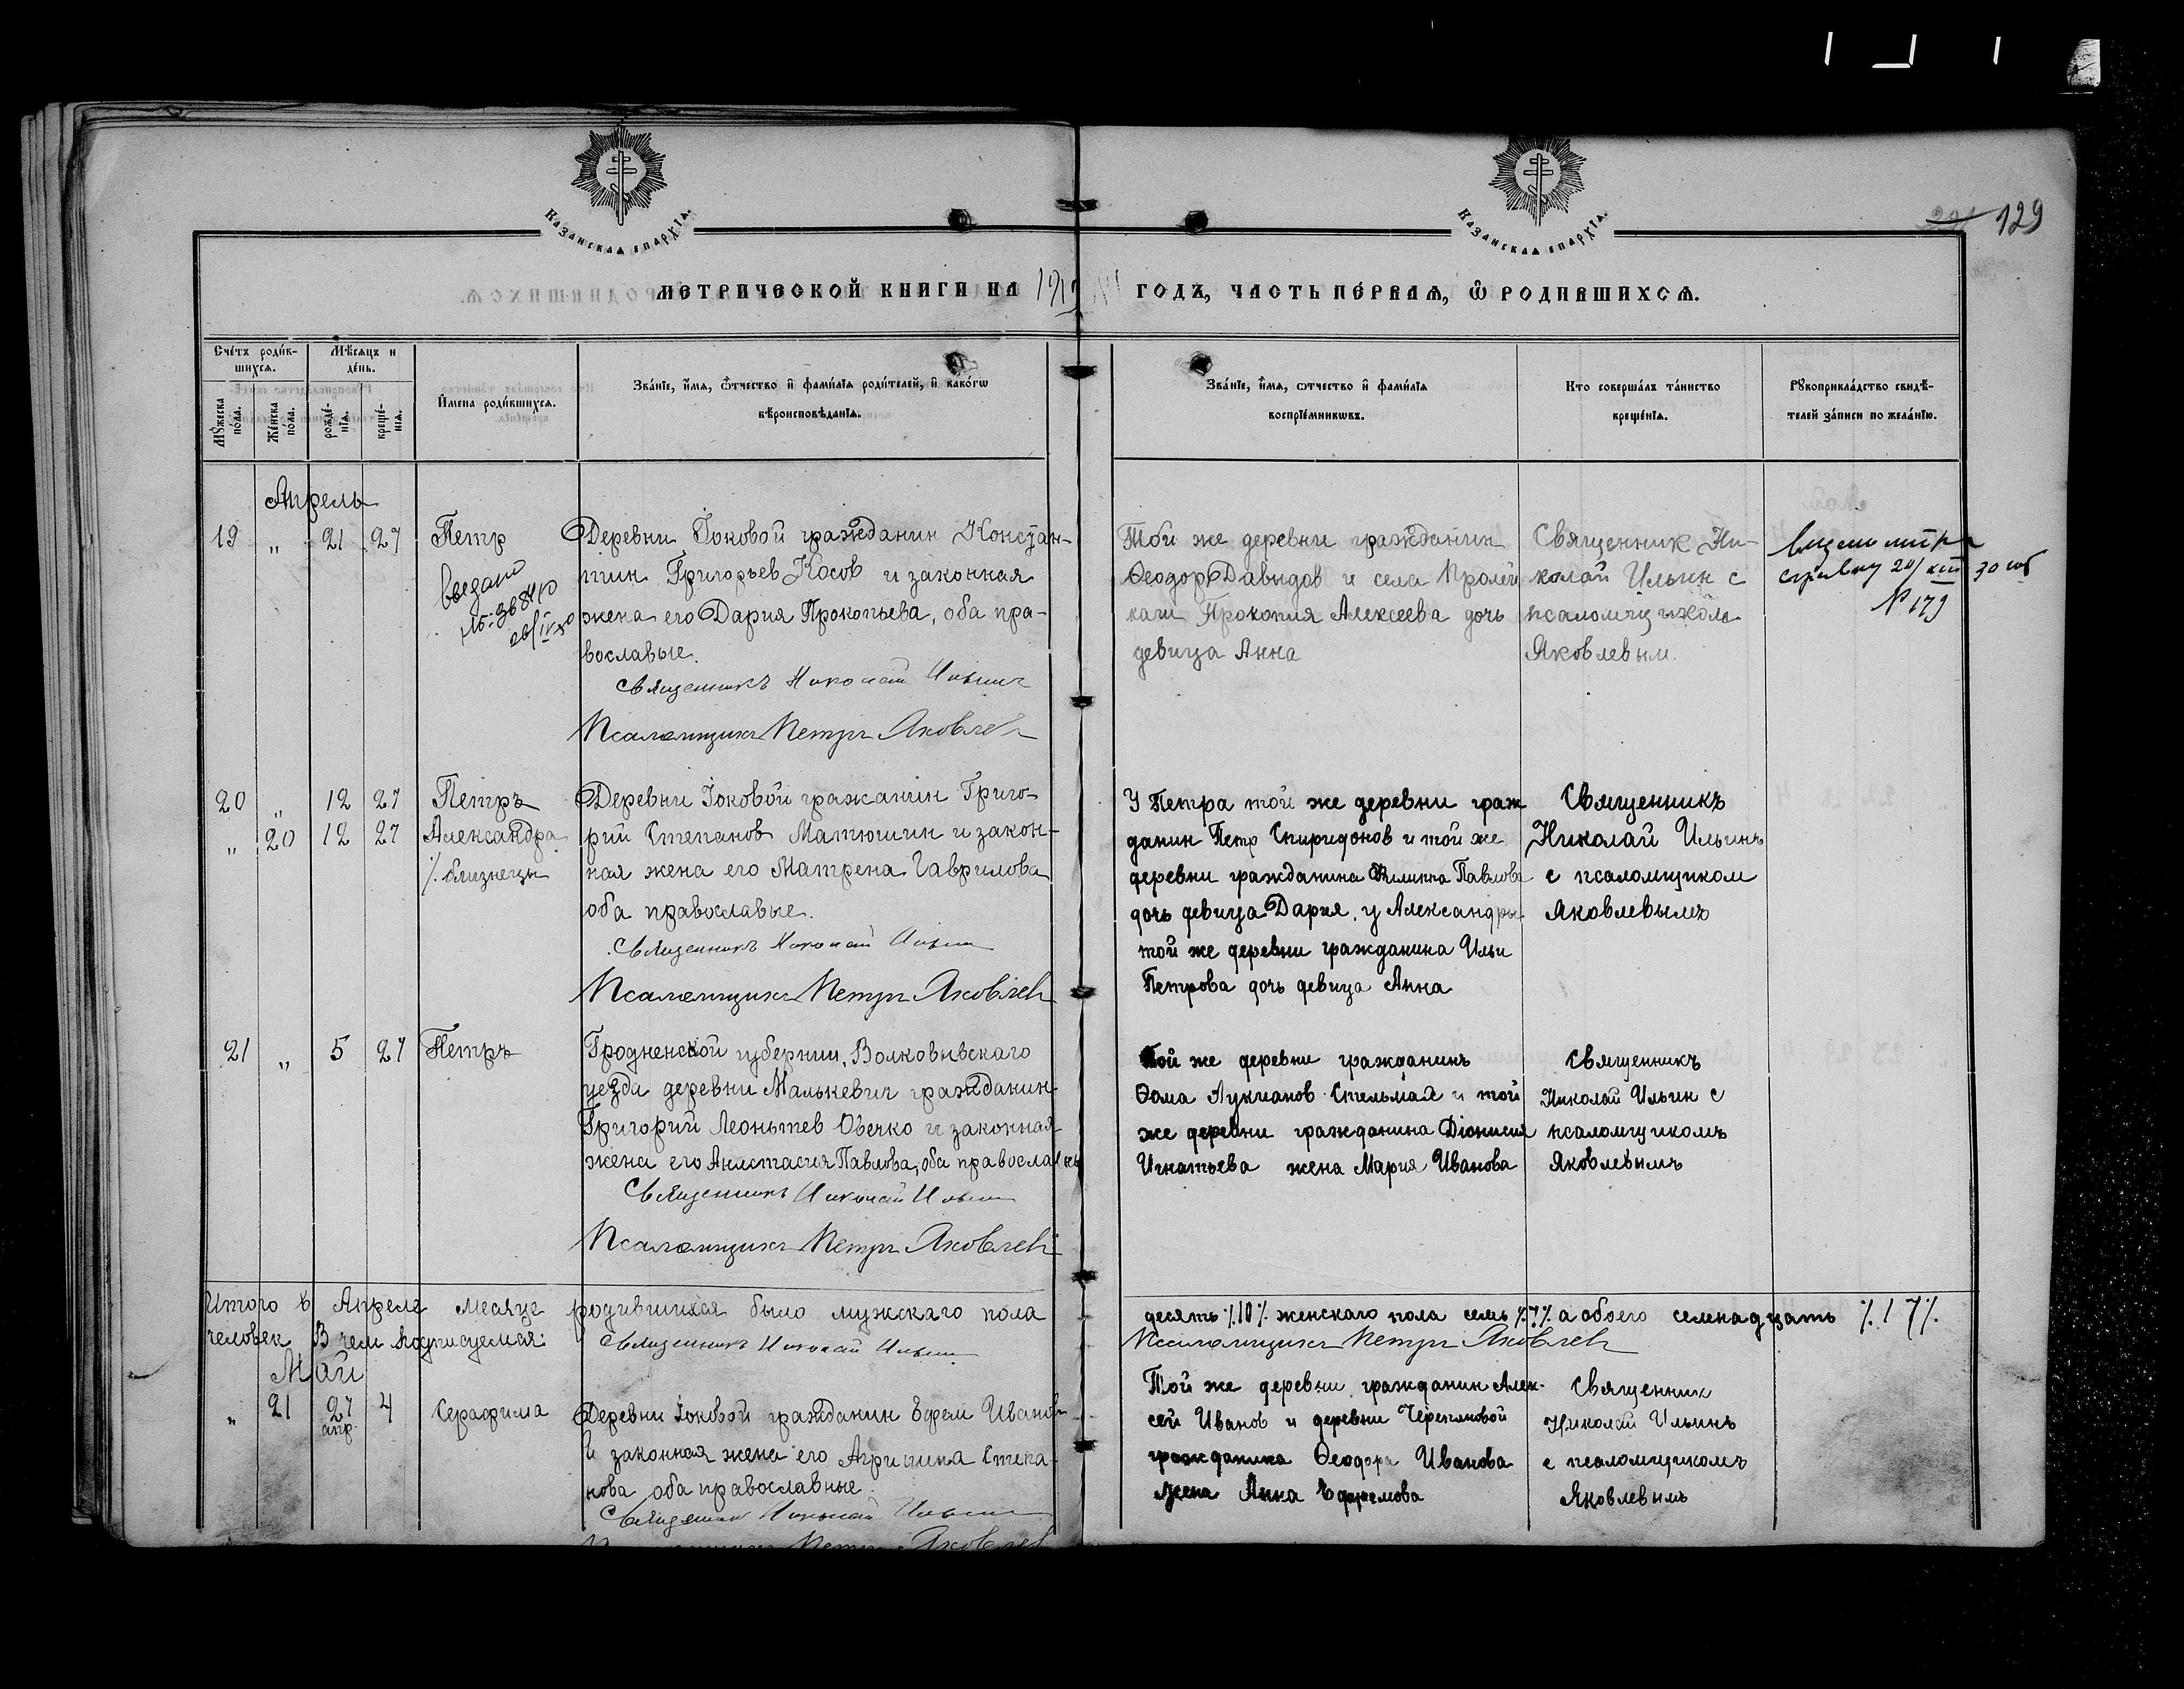 КАЗАНСКАЯ ЕПАРХІЯ.
КАЗАНСКАЯ ЕПАРХІЯ.
129
МЕТРИЧЕСКОЙ КНИГИ НА
ГОДЪ, ЧАСТЬ ПЕ́РВАЯ, Ѽ РОДИВШИХСЯ.
Сче́тъ роди́в-
шихся.
Мѣ́сяцъ и
де́нь.
Мꙋ́жеска
по́ла.
Же́нска
по́ла.
рожде́-
нія.
креще́-
нія.
И҆мена роди́вшихся.
Зва́нїе, и҆́мя, ѻ҆́тчество и҆ фами́лїя роди́телей, и҆ како́гѡ
вѣроисповѣ́данїя.
Зва́нїе, и҆́мя, ѻ҆тчество и҆ фами́лїя
воспрїе́мникѡвъ.
Кто соверша́лъ та́инство
креще́нїя.
Рꙋкоприкла́дство свидѣ́-
телей за́писи по жела́нїю.
Апрель
19 „ 21 27 Петр
Деревни Јоковой гражданин Констан-
тин Григорьев Косов и законная
жена его Дария Прокопьева, оба пра-
вославые.
Священникъ Николай Ильин
Псаломщикъ Петръ Яковлев
выдано
Той же деревни гражданин
Ѳеодор Давидов и села
Прокопия Алексеева дочь
девица Анна
Священник Ни-
колай Ильин с
псаломщиком
Яковлевым.
справку 20/XIII 30
№ 179
20 „ 12 27 Петръ
„ 20 12 27 Александра
٪ близнецы
Деревни Јоковой гражанин Григо-
рий Степанов Матюшин и закон-
ная жена его Матрена Гаврилова
оба православые.
Священникъ Николай Ильин
Псаломщикъ Петръ Яковлев
У Петра той же деревни граж
данин Петр Спиридонов и той же
деревни гражданина Филиппа Павлова
дочь девица Дария, у Александры
той же деревни гражданина Ильи
Петрова дочь девица Анна
Священникъ
Николай Ильинъ
с псаломщиком
Яковлевымъ
21 „ 5 27 Петръ
Гродненской губернии, Волковывскаго
уезда деревни Малькевич гражданин
Григорий Леоньтев Овечко и законная
жена его Анастасия Павлова, оба православы
Священникъ Николай Ильин
Псаломщикъ Петръ Яковлев
Той же деревни гражданинъ
Ѳома Лукианов Стельмах и той
же деревни гражданина Діонисия
Игнатьева жена Мария Иванова
Священникъ
Николай Ильин с
псаломщикомъ
Яковлевымъ
Итого в Апреле месяце родившихся было мужскаго пола
десять ٪10٪ женскаго пола семь ٪7٪ а обоего семенадцать ٪17٪
человек В чем подписуемся: Священникъ Николай Ильин
Псаломщикъ Петръ Яковлев
Май
„ 21 27 4 Серафима
апр.
Деревни Јоковой гражданин Ефрем Иванов
и законная жена его Агрипина Степа-
нова оба православные.
Священникъ Николай Ильин
Петръ Яковлев
Той же деревни гражданин Алек-
сей Иванов и деревни Черепановой
гражданина Ѳеодора Иванова
жена Анна Ефремова
Священник
Николай Ильинъ
с псаломщикомъ
Яковлевымъ